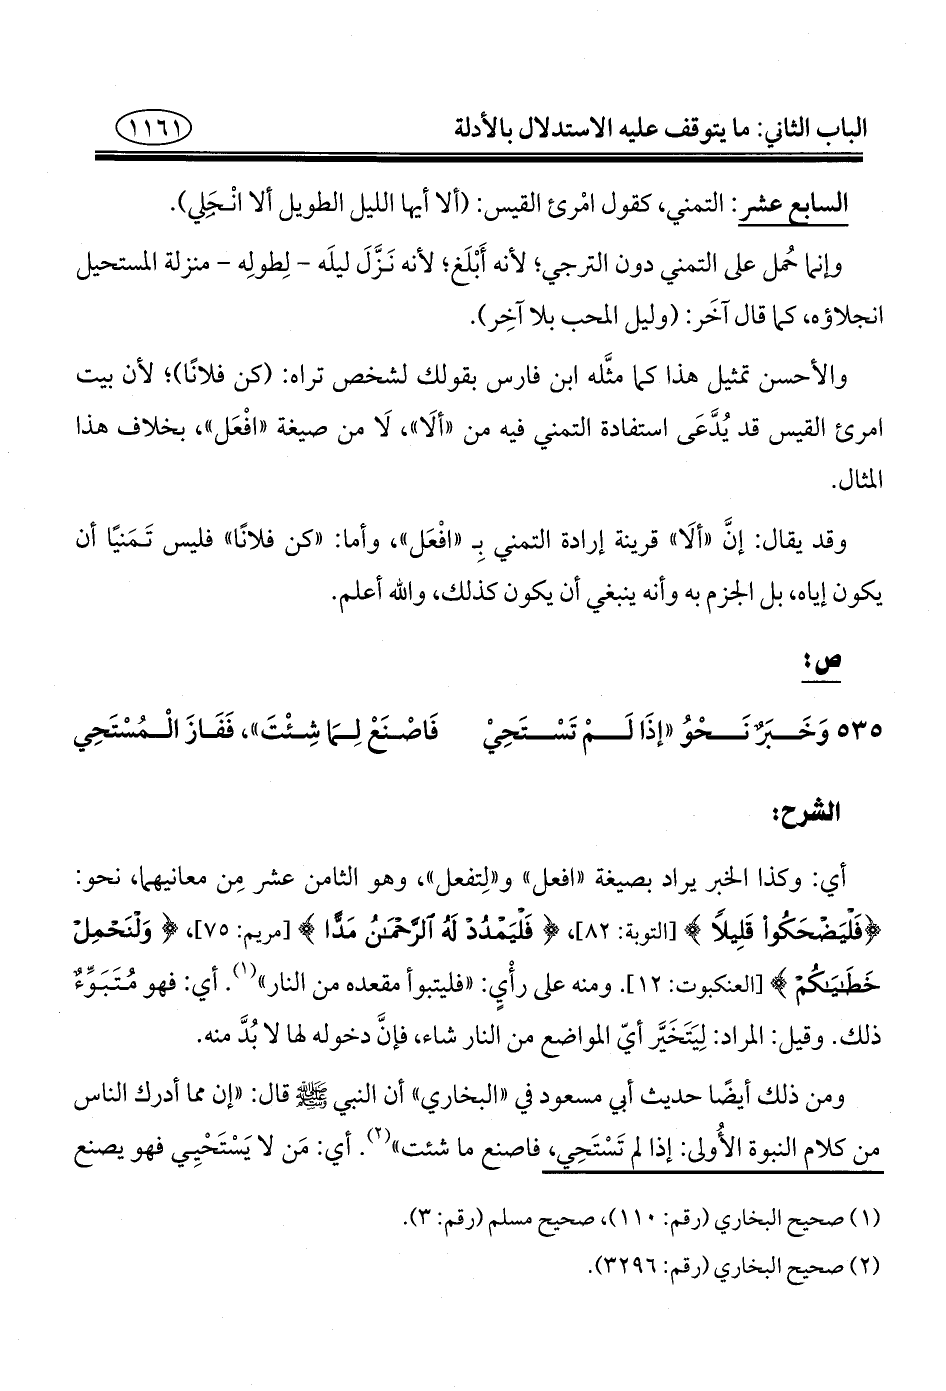 الباب الثاني: ما يتوقف عليه الاستدلال بالأدلة ١١٦١
السابع عشر: التمني، كقول امْرئ القيس: (ألا أيها الليل الطويل ألا انْجَلِي).
وإنما حُمل على التمني دون الترجي؛ لأنه أَبْلَغ؛ لأنه نَزَّلَ ليلَه – لِطولِه – منزلة المستحيل
انجلاؤه، كما قال آخَر: (وليل المحب بلا آخِر).
والأحسن تمثيل هذا كما مثَّله ابن فارس بقولك لشخص تراه: (كن فلانًا)؛ لأن بيت
امرئ القيس قد يُدَّعَى استفادة التمني فيه من «ألَا»، لَا من صيغة «افْعَل»، بخلاف هذا
المثال.
وقد يقال: إنَّ «ألَا» قرينة إرادة التمني بِـ «افْعَل»، وأما: «كن فلانًا» فليس تَمَنيًا أن
يكون إياه، بل الجزم به وأنه ينبغي أن يكون كذلك، والله أعلم.
ص:
٥٣٥ وَخَبَرٌ نَحْوُ «إِذَا لَمْ تَسْتَحِيْ فَاصْنَعْ لِمَا شِئْتَ»، فَفَازَ الْمُسْتَحِي
الشرح:
أي: وكذا الخبر يراد بصيغة «افعل» و«لِتفعل»، وهو الثامن عشر مِن معانيهما، نحو:
﴿فَلْيَضْحَكُوا۟ قَلِيلًا﴾ [التوبة: ٨٢]، ﴿فَلْيَمْدُدْ لَهُ ٱلرَّحْمَـٰنُ مَدًّا﴾ [مريم: ٧٥]، ﴿وَلْنَحْمِلْ
خَطَـٰيَـٰكُمْ﴾ [العنكبوت: ١٢]. ومنه على رأْيٍ: «فليتبوأ مقعده من النار»(١). أي: فهو مُتَبَوِّءٌ
ذلك. وقيل: المراد: لِيَتَخَيَّر أيّ المواضع من النار شاء، فإنَّ دخوله لها لا بُدَّ منه.
ومن ذلك أيضًا حديث أبي مسعود في «البخاري» أن النبي ﷺ قال: «إن مما أدرك الناس
من كلام النبوة الأُولى: إذا لم تَسْتَحِي، فاصنع ما شئت»(٢). أي: مَن لا يَسْتَحْيِي فهو يصنع
(١) صحيح البخاري (رقم: ١١٠)، صحيح مسلم (رقم: ٣).
(٢) صحيح البخاري (رقم: ٣٢٩٦).